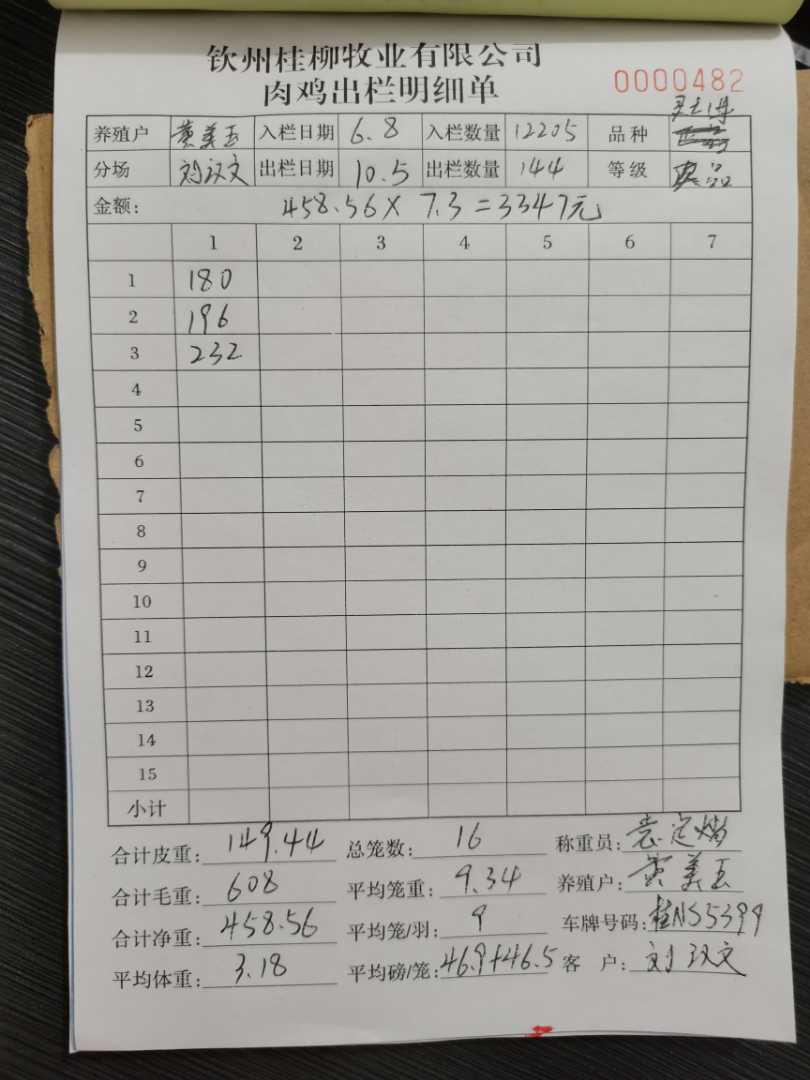 钦州桂柳牧业有限公司
肉鸡出栏明细单
0000482
养殖户 黄美玉 入栏日期 6.8 入栏数量 12205 品种
分场 刘汉文 出栏日期 10.5 出栏数量 144 等级 次品
金额: 458.56× 7.3=3347元
1 2 3 4 5 6 7
1 180
2 196
3 232
4
5
6
7
8
9
10
11
12
13
14
15
小计
合计皮重: 149.44 总笼数: 16 称重员: 袁定
合计毛重: 608 平均笼重: 9.34 养殖户: 黄美玉
合计净重: 458.56 平均笼/羽: 9 车牌号码: 桂NS5399
平均体重: 3.18 平均磅/笼: 46.9+46.5 客 户: 刘汉文